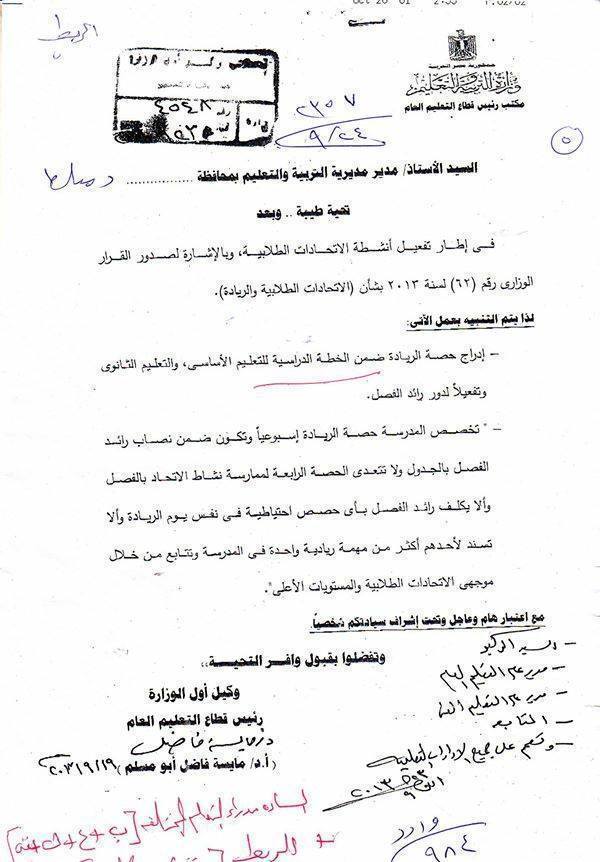 الربط
جمهورية مصر العربية
وزارة التربية والتعليم
مكتب رئيس قطاع التعليم العام
٤٥٤٨
٢٣٥٧
٩/٢٤
٥
السيد الأستاذ/ مدير مديرية التربية والتعليم بمحافظة .............. دمياط
تحية طيبة .. وبعد
فى إطار تفعيل أنشطة الاتحادات الطلابية، وبالإشارة لصدور القرار
الوزارى رقم (٦٢) لسنة ٢٠١٣ بشأن (الاتحادات الطلابية والريادة).
لذا يتم التنبيه بعمل الآتى:
– إدراج حصة الريادة ضمن الخطة الدراسية للتعليم الأساسى، والتعليم الثانوى
وتفعيلاً لدور رائد الفصل.
– " تخصص المدرسة حصة الريادة إسبوعياً وتكون ضمن نصاب رائد
الفصل بالجدول ولا تتعدى الحصة الرابعة لممارسة نشاط الاتحاد بالفصل
وألا يكلف رائد الفصل بأى حصص احتياطية فى نفس يوم الريادة وألا
تسند لأحدهم أكثر من مهمة ريادية واحدة فى المدرسة وتتابع من خلال
موجهى الاتحادات الطلابية والمستويات الأعلى".
مع اعتبار هام وعاجل وتحت إشراف سيادتكم شخصياً.
وتفضلوا بقبول وافر التحية،،
وكيل أول الوزارة
رئيس قطاع التعليم العام
د. مايسة فاضل
(أ.د/ مايسة فاضل أبو مسلم) ٢٠١٣/٩/١٩
– السيد الوكيل
– مدير عام التعليم العام
– مدير عام التعليم
– المتابعة
– وتعمم على جميع الإدارات التعليمية
٢٠١٣
السادة مدراء التعليم
+ الربط
وارد
٩٨٤